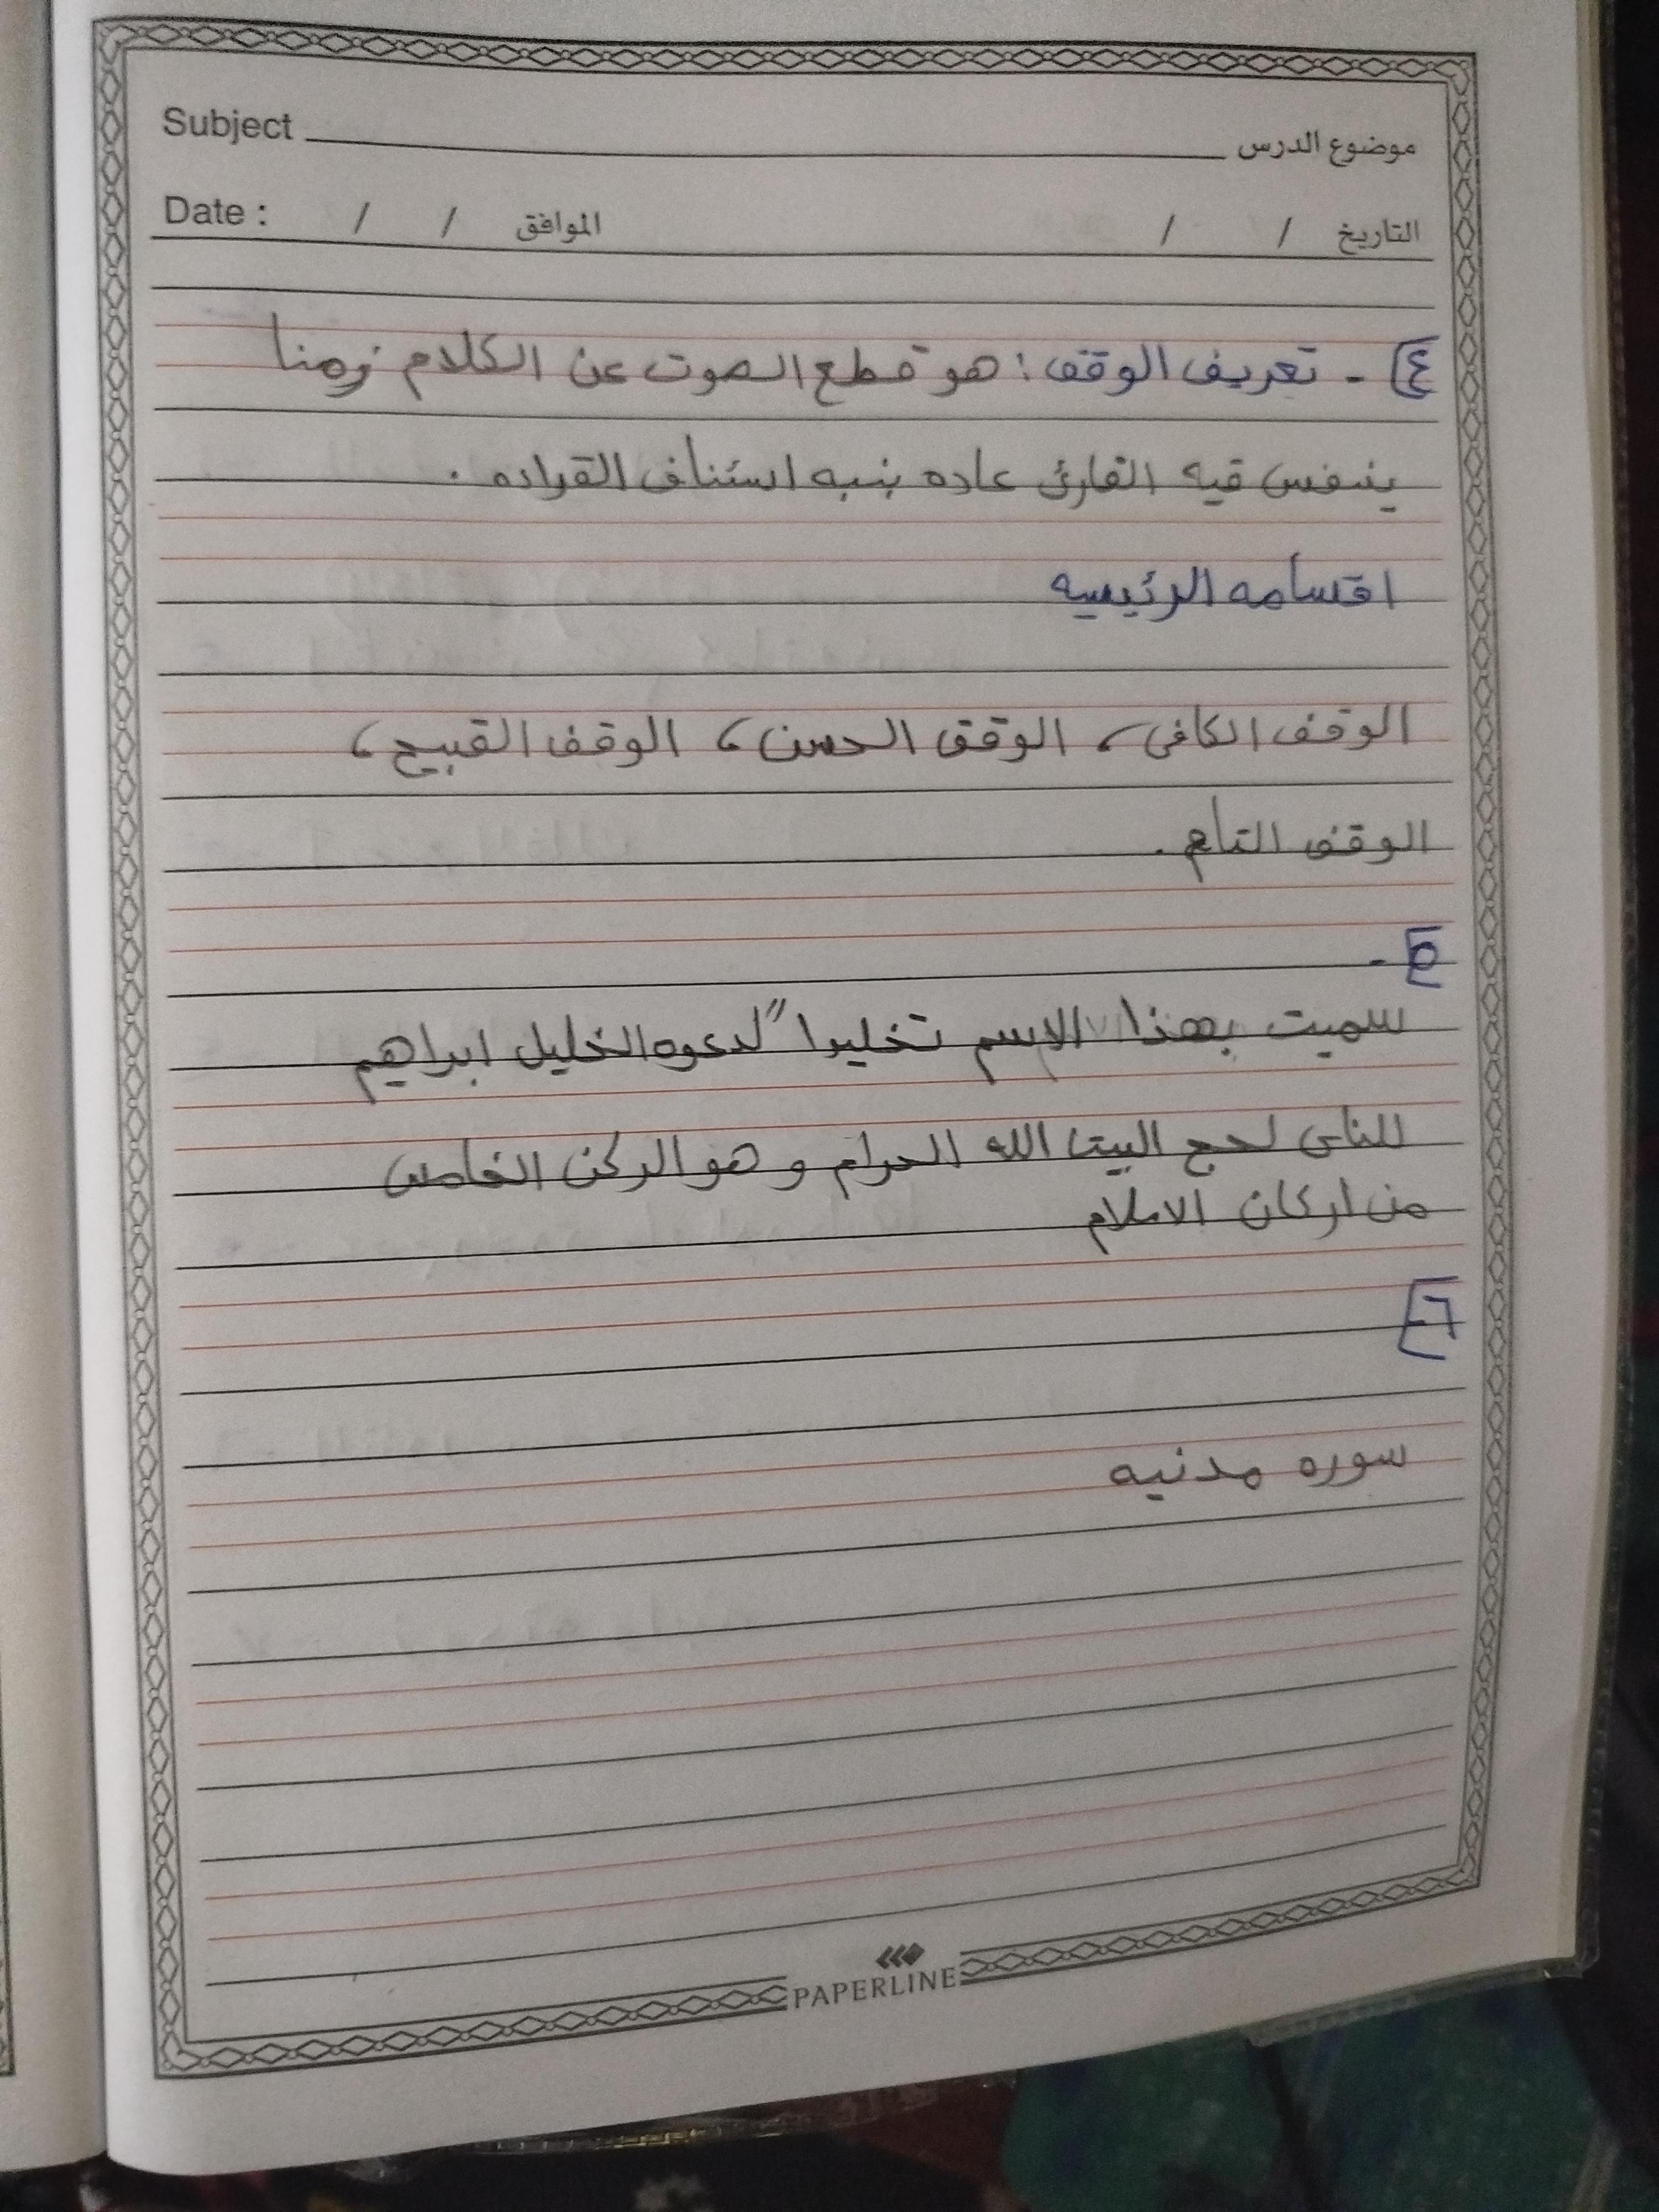 Subject موضوع الدرس
Date : / / الموافق / / التاريخ
٤ - تعريف الوقف : هو قطع الصوت عن الكلام زمنا
يتنفس فيه القارئ عاده بنيه استئناف القراءه .
اقسامه الرئيسيه
الوقف الكافي ، الوقف الحسن ، الوقف القبيح ،
الوقف التام .
٥ -
سميت بهذا الاسم تخليدا" لدعوه الخليل ابراهيم
للناس لحج البيت الله الحرام و هو الركن الخامس
من اركان الاسلام
٦ -
سوره مدنيه
PAPERLINE